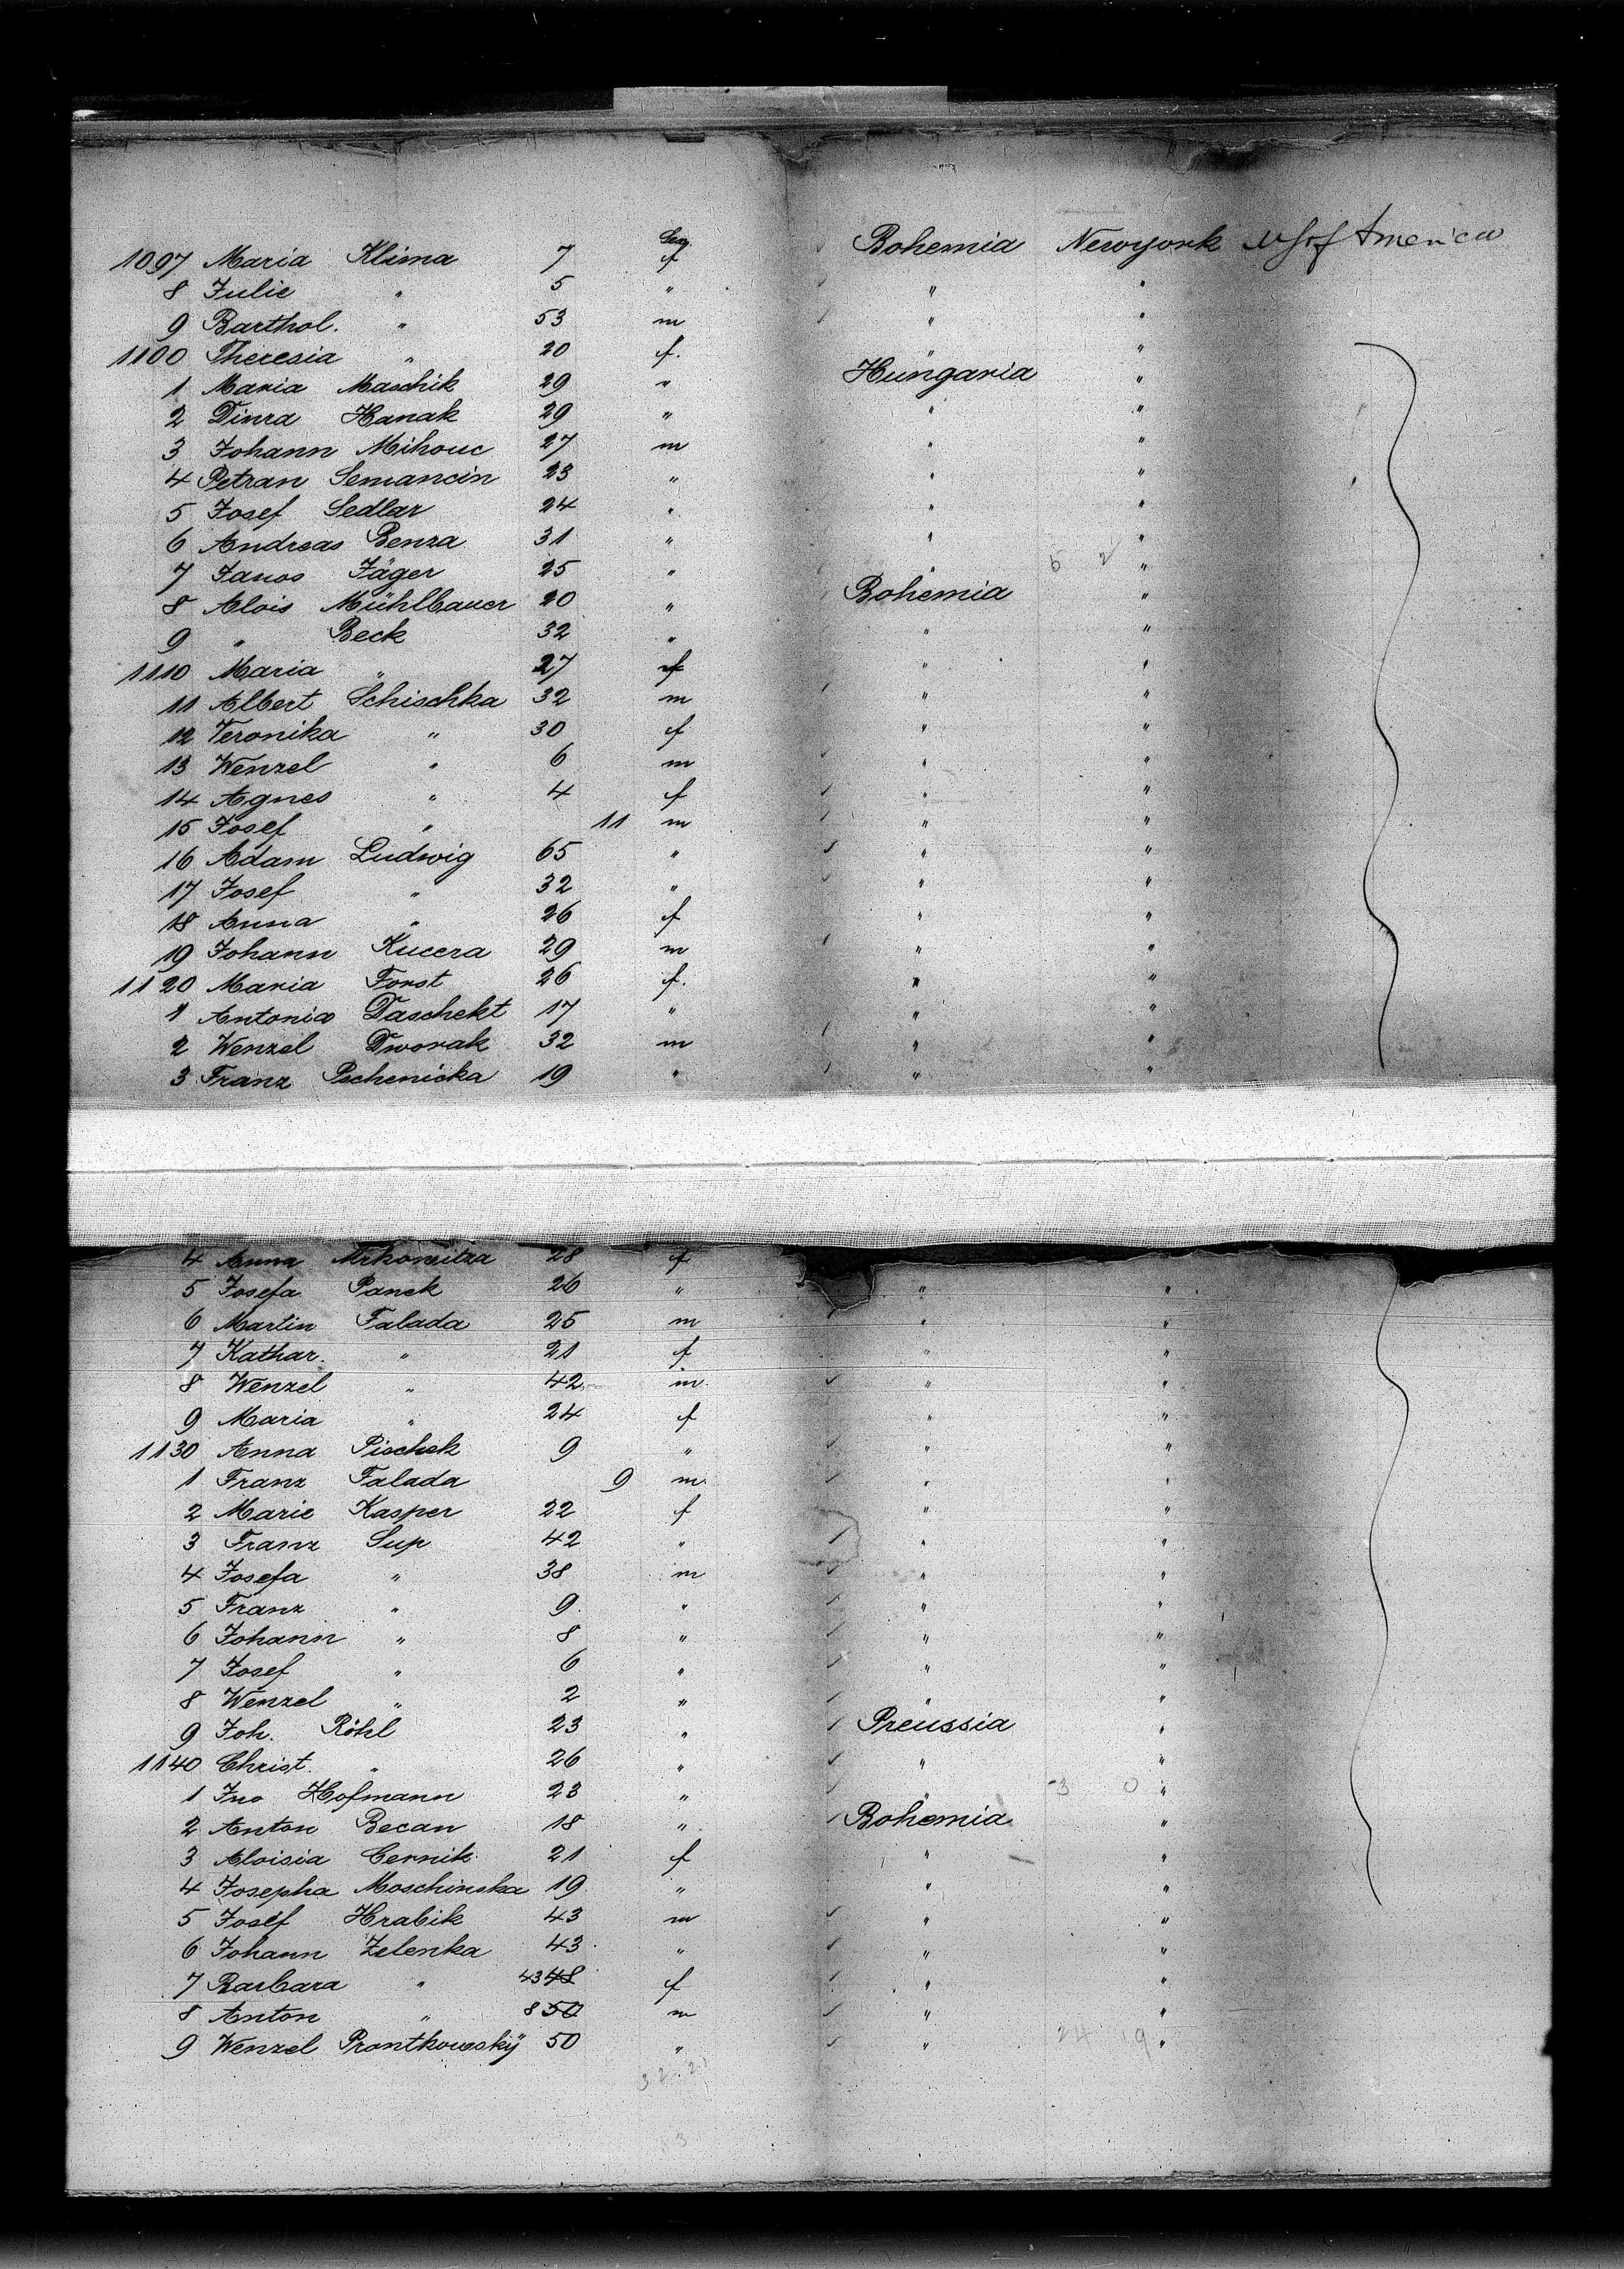 Sex.
1097 Maria Klima 7 f Bohemia Newyork US of America
8 Julie " 5 " " "
9 Barthol. " 53 m " "
1100 Theresia " 20 f. " "
1 Maria Maschik 29 " Hungaria "
2 Dinra Hanak 29 " " "
3 Johann Mihouc 27 m " "
4 Petran Semancin 23 " " "
5 Josef Sedlar 24 " " "
6 Andreas Benza 31 " " "
7 Janos Jäger 25 " " 5 2 "
8 Alois Mühlbauer 20 " Bohemia "
9 " Beck 32 " " "
1110 Maria " 27 f " "
11 Albert Schischka 32 m " "
12 Veronika " 30 f " "
13 Wenzel " 6 m " "
14 Agnes " 4 f " "
15 Josef " 11 m " "
16 Adam Ludwig 65 " " "
17 Josef " 32 " " "
18 Anna " 26 f " "
19 Johann Kucera 29 m " "
1120 Maria Forst 26 f. " "
1 Antonia Daschekt 17 " " "
2 Wenzel Dworak 32 m " "
3 Franz Pschenicka 19 " " "
4 Anna 28 f
5 Josefa Panek 26 " " "
6 Martin Falada 25 m " "
7 Kathar. " 21 f " "
8 Wenzel " 42 m. " "
9 Maria " 24 f " "
1130 Anna Pischek 9 " " "
1 Franz Falada 9 m. " "
2 Marie Kasper 22 f " "
3 Franz Sup 42 " " "
4 Josefa " 38 m " "
5 Franz " 9. " " "
6 Johann " 8 " " "
7 Josef " 6 " " "
8 Wenzel " 2 " " "
9 Joh. Röhl 23 " Preussia "
1140 Christ. " 26 " " "
1 Ino Hofmann 23 " " 3 0 "
2 Anton Becan 18 " Bohemia "
3 Aloisia Cernik 21 f " "
4 Josepha Moschinska 19 " " "
5 Josef Hrabik 43 m " "
6 Johann Zelenka 43 " " "
7 Barbara " 43 48 f " "
8 Anton " 8 50 m " "
9 Wenzel Prontkowskÿ 50 " " 24 9 "
32 21